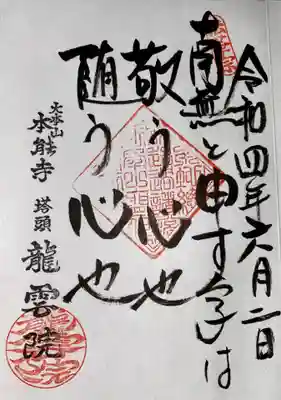 令和四年六月二日
南無と申す字は
敬う心也
随う心也
大本山
本能寺 塔頭 龍雲院